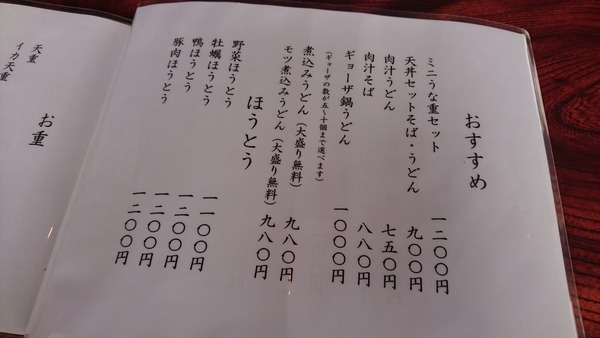 おすすめ
ミニうな重セット 一二〇〇円
天丼セットそば・うどん 九〇〇円
肉汁うどん 七五〇円
肉汁そば 八八〇円
ギョーザ鍋うどん 一〇〇〇円
(ギョーザの数が五〜十個まで選べます)
煮込みうどん(大盛り無料) 九八〇円
モツ煮込みうどん(大盛り無料) 九八〇円
ほうとう
野菜ほうとう 一一〇〇円
牡蠣ほうとう 一二〇〇円
鴨ほうとう 一二〇〇円
豚肉ほうとう 一二〇〇円
お重
天重
イカ天重